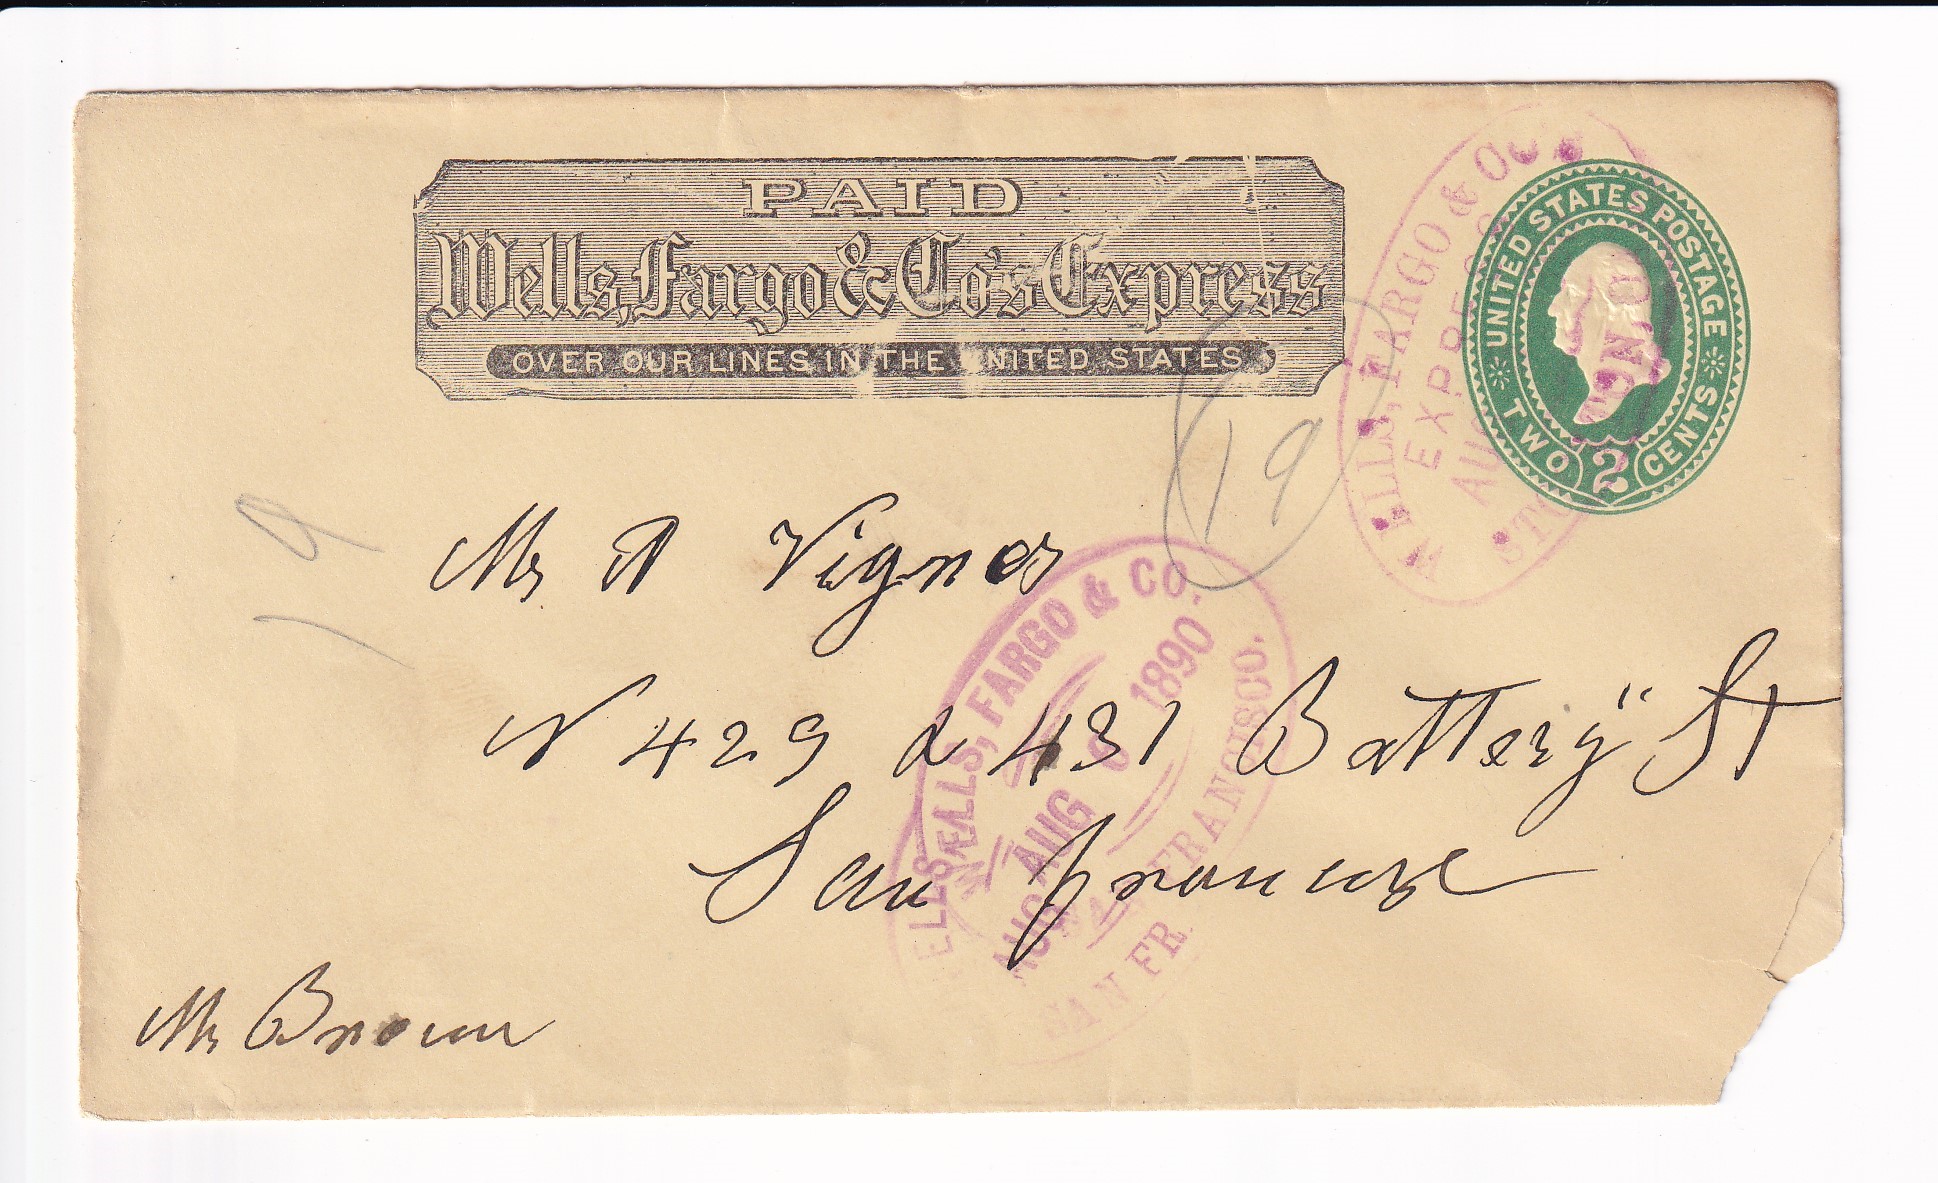 PAID
Wells, Fargo & Co's Express
OVER OUR LINES IN THE UNITED STATES
WELLS, FARGO & CO.
EXPRESS
AUG
STO TON,
UNITED STATES POSTAGE
TWO 2 CENTS
19
19
Mr A Vignes
WELLS, FARGO & CO.
AUG 6 1890
SAN FRANCISCO.
ELLS
AUG
SAN FR
N 429 & 431 Battery" St
San Francisco
Mr Brown